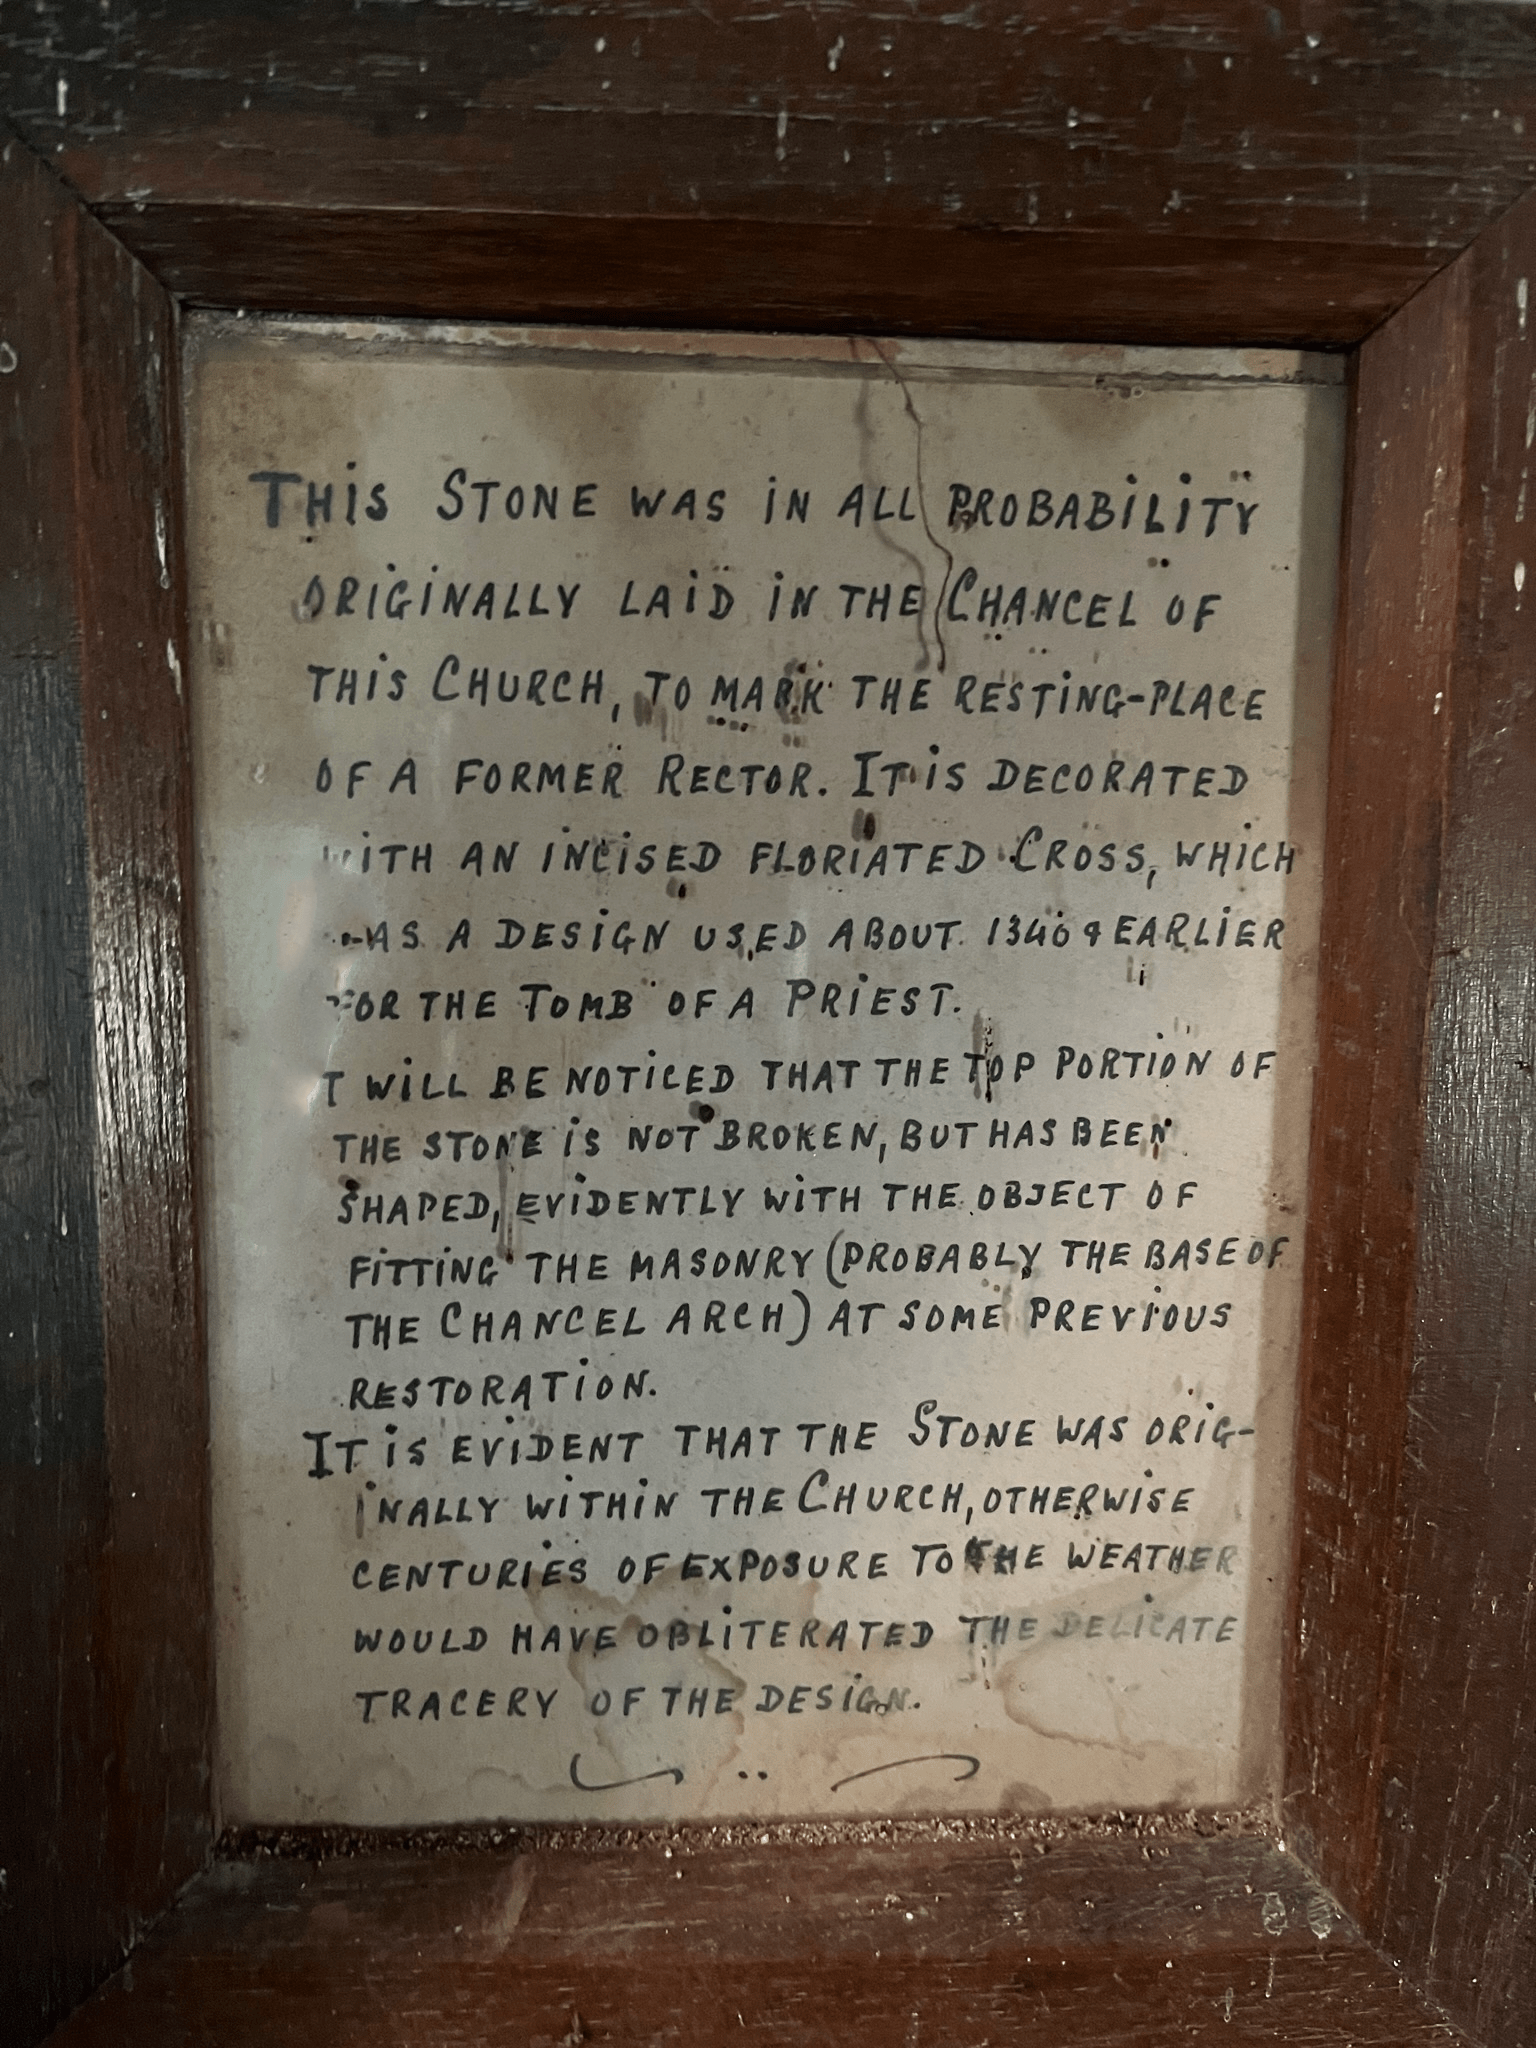 This Stone was in all probability
originally laid in the Chancel of
this Church, to mark the resting-place
of a former Rector. It is decorated
with an incised floriated Cross, which
was a design used about 1340 & earlier
for the Tomb of a Priest.
It will be noticed that the top portion of
the stone is not broken, but has been
shaped, evidently with the object of
fitting the masonry (probably the base of
the Chancel Arch) at some previous
restoration.
It is evident that the Stone was orig-
inally within the Church, otherwise
centuries of exposure to the weather
would have obliterated the delicate
tracery of the design.